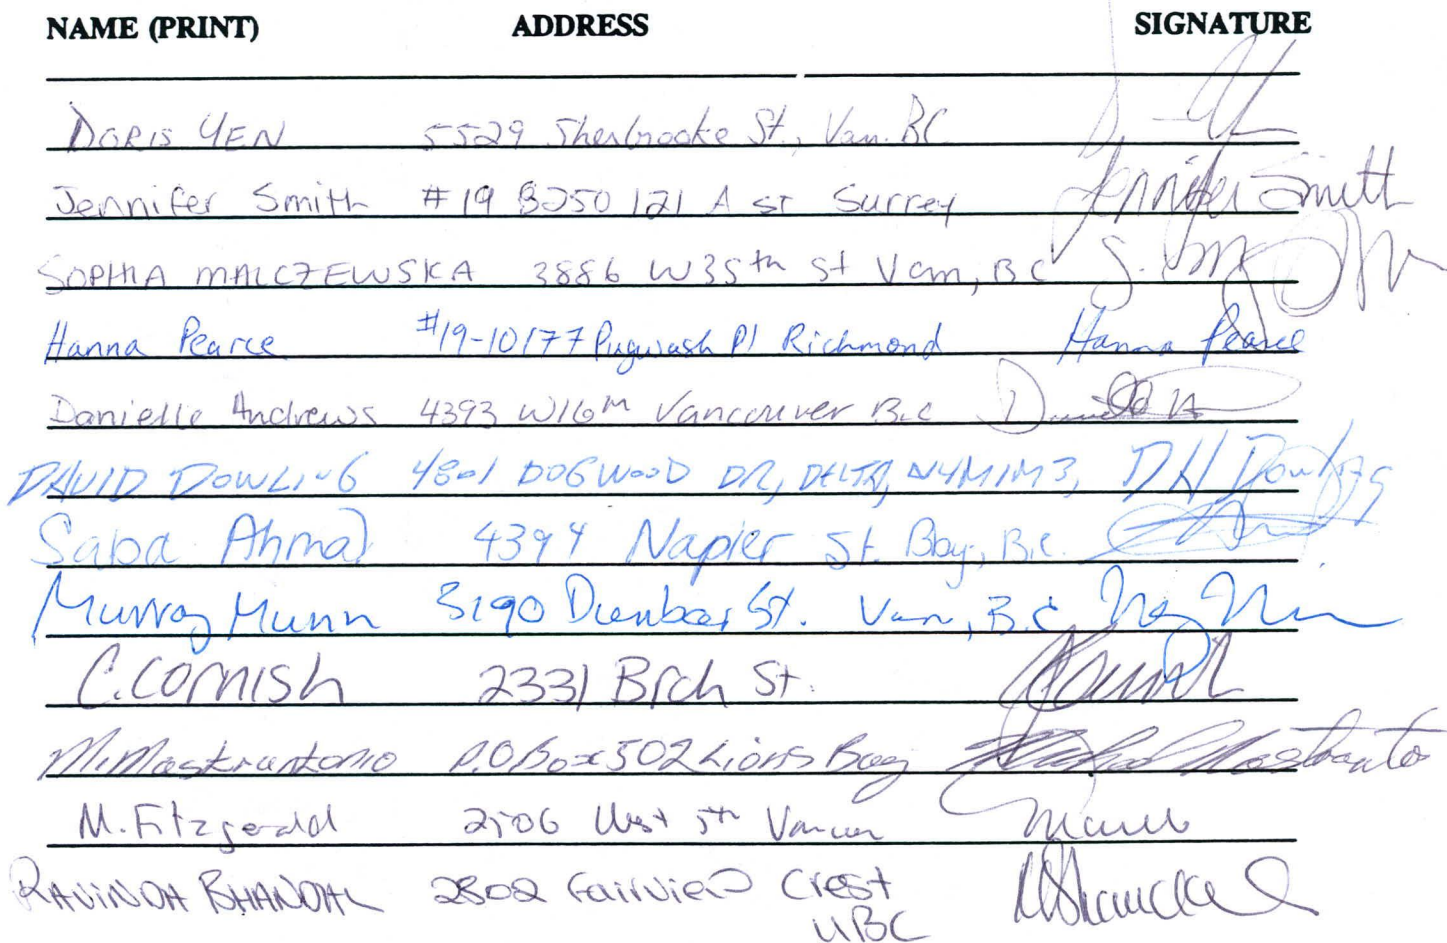 NAME (PRINT) ADDRESS SIGNATURE
DORIS YEN 5529 Sherbrooke St., Van. BC
Jennifer Smith #19 8250 121 A ST Surrey Jennifer Smith
SOPHIA MALCZEWSKA 3886 W35th St Van, B.C S.
Hanna Pearce #19-10177 Pugwash Pl Richmond Hanna Pearce
Danielle Andrews 4393 W16th Vancouver B.C
DAVID DOWLING 4801 DOGWOOD DR, DELTA, V4M1M3, DH Dowling
Saba Ahmad 4394 Napier St. Bby, B.C.
Murray Munn 3190 Dunbar St. Van, B.C
C. Cornish 2331 Birch St.
M. Mastrantonio P.O Box 502 Lions Bay Michael Mastrantonio
M. Fitzgerald 2506 West 5th
RAVINDA BHANDAL 2802 Fairview Crest
UBC